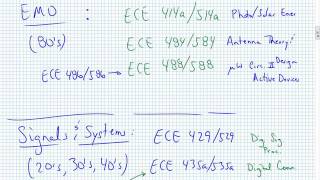 EMO : ECE 414a/514a Photo/Solar Ener
(80's) ECE 484/584 Antenna Theory
ECE 486a/586 ECE 488/588 μW Circ. II Design
Active Devices
Signals & Systems: ECE 429/529 Dig Sig
Proc.
(20's, 30's, 40's) ECE 435a/535a Digital Comm.